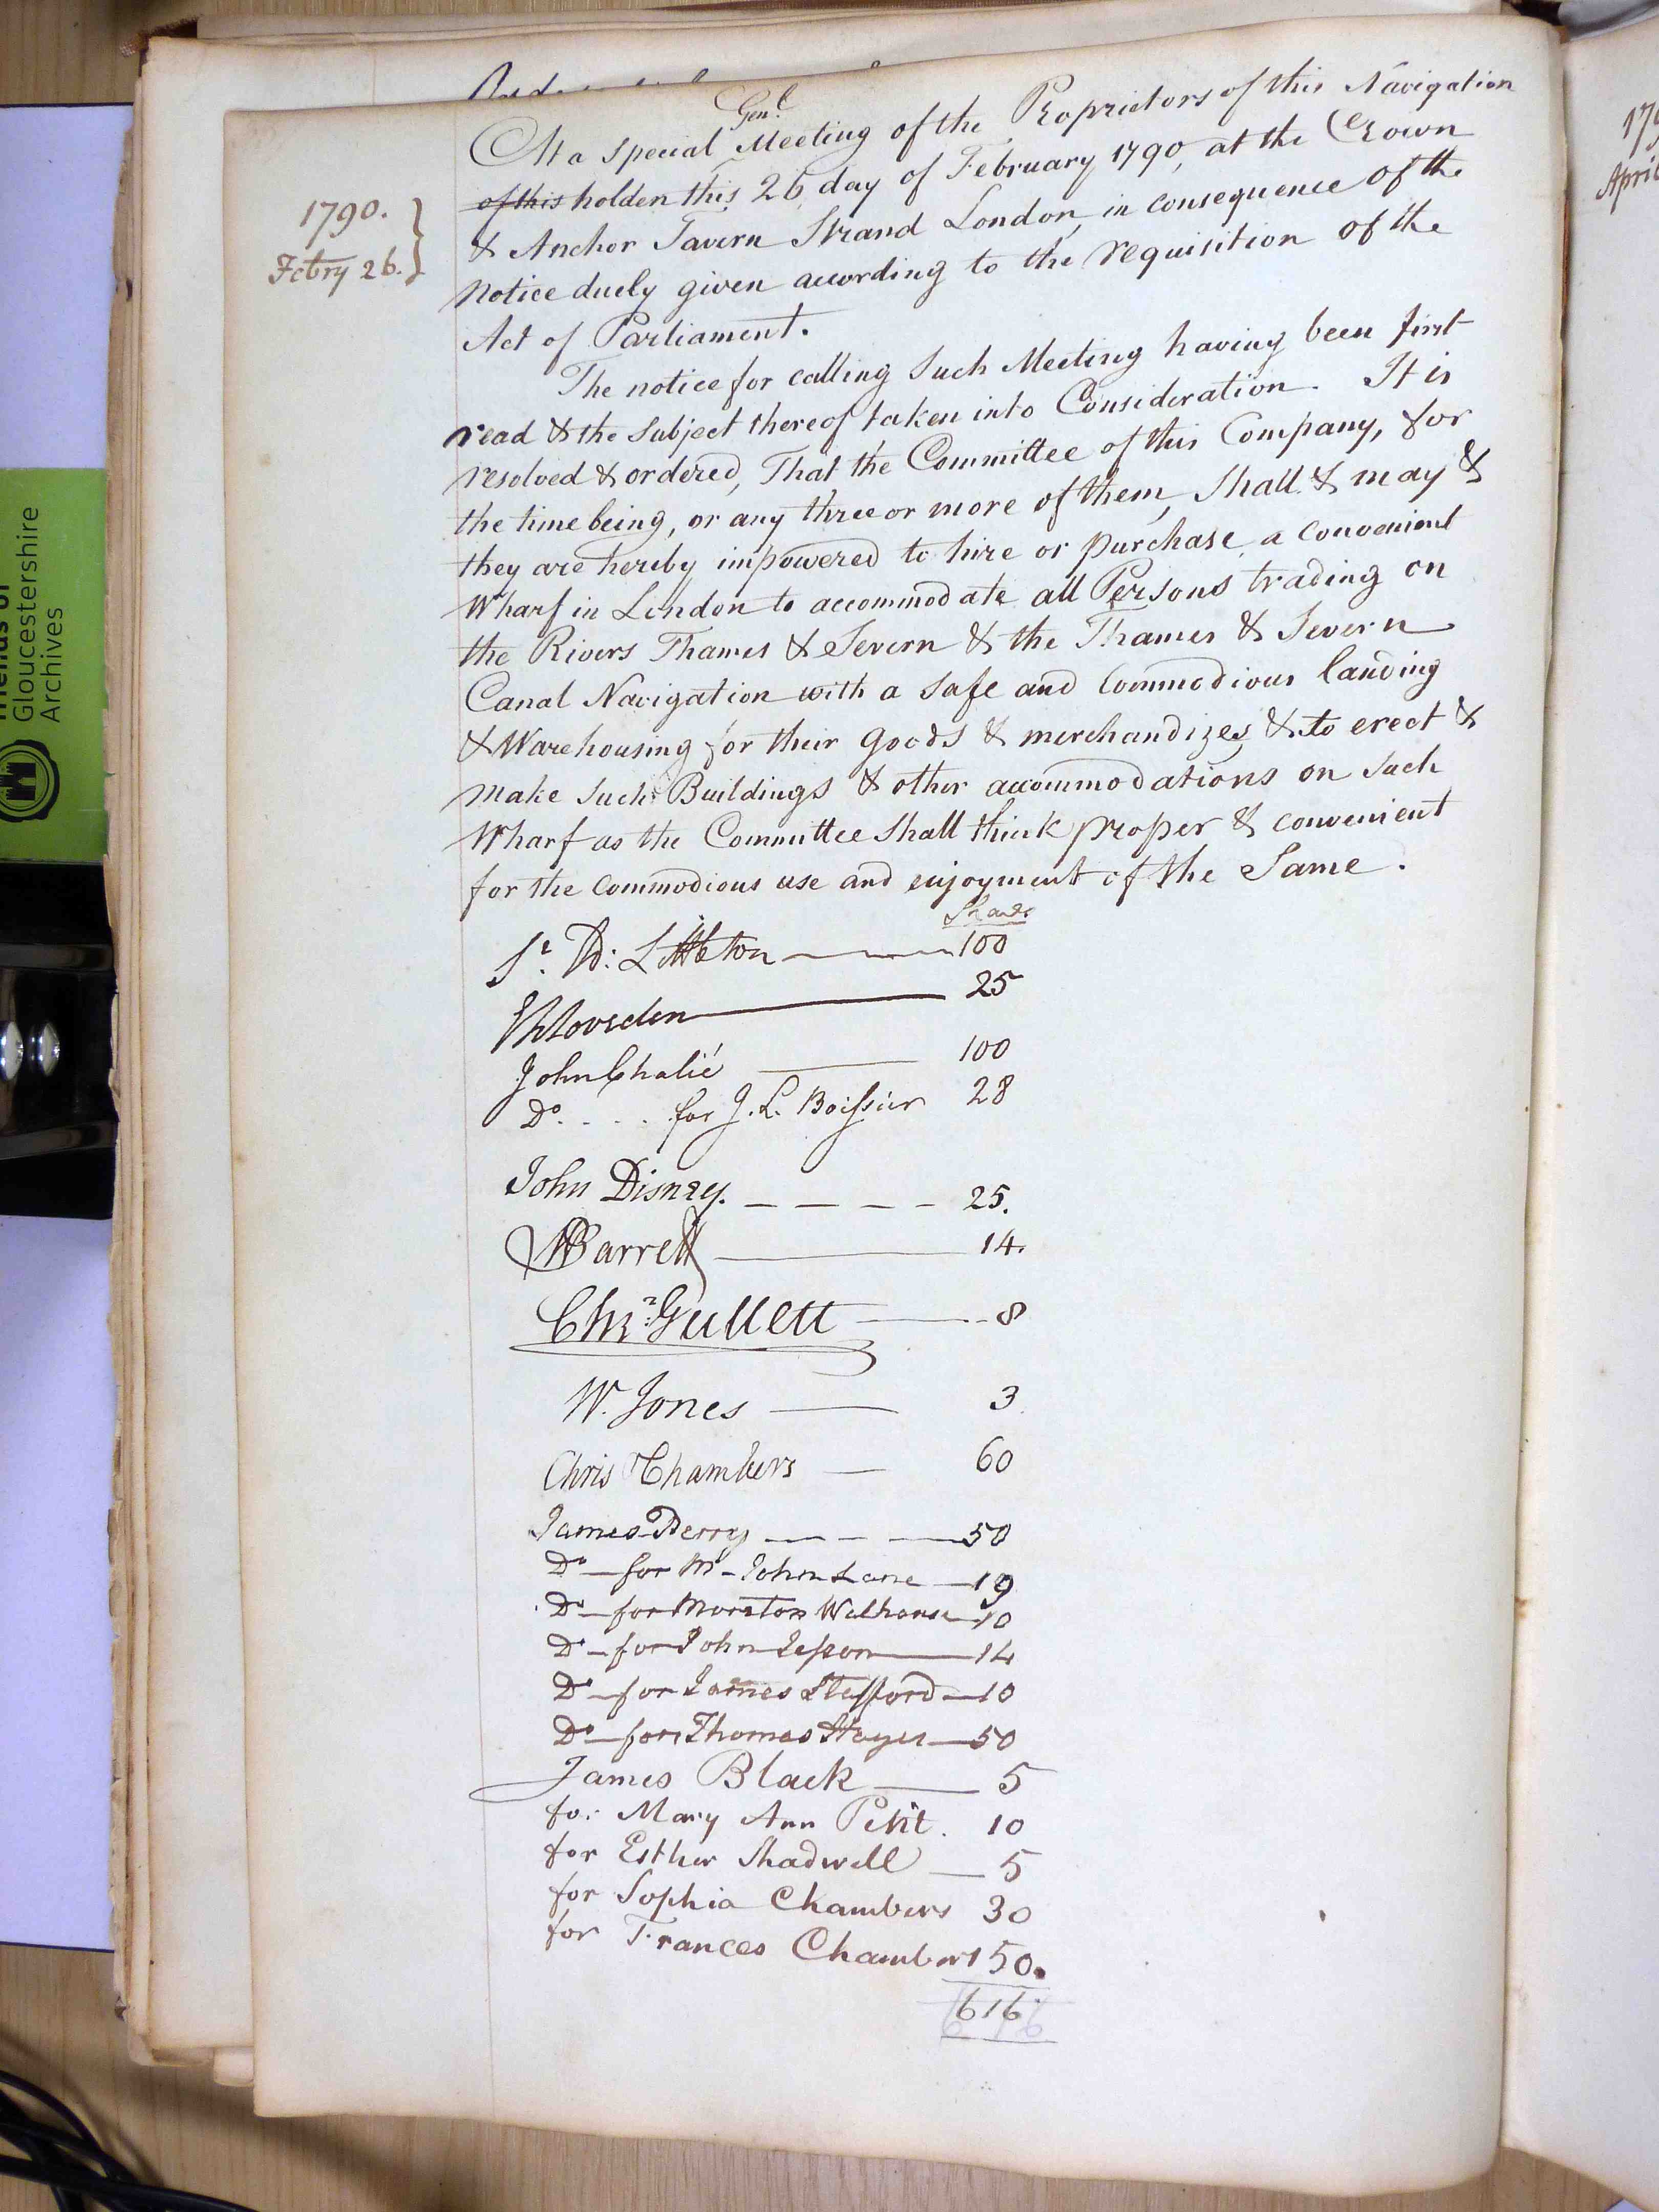 1790.
Febry 26.
At a special Genl. Meeting of the Proprietors of this Navigation
of this holden this 26 day of February 1790, at the Crown
& Anchor Tavern Strand London, in consequence of the
notice duely given according to the requisition of the
Act of Parliament.
The notice for calling Such Meeting having been first
read & the Subject thereof taken into Consideration. It is
resolved & ordered, That the Committee of this Company, for
the time being, or any three or more of them, Shall & may &
they are hereby impowered to hire or purchase a convenient
Wharf in London to accommodate all Persons trading on
the Rivers Thames & Severn & the Thames & Severn
Canal Navigation with a Safe and Commodious landing
& Warehousing for their goods & merchandizes & to erect &
make Such Buildings & other accommodations on Such
Wharf as the Committee Shall think proper & convenient
for the commodious use and enjoyment of the Same.
Shares
Sr. Ed: Littleton 100
25
John Chalié 100
Do. . . . for J. L. Boissier 28
John Disney. 25.
Barrett 14.
Chrr. Gullett 8
W. Jones 3
Chris Chambers 60
James Perry 50
Do for Mr John Lane 19
Do for Moreton Walhouse 10
Do for John Jesson 14
Do for James Stafford 10
Do for Thomas Hayes 50
James Black 5
for Mary Ann Petit. 10
for Esther Shadwell 5
for Sophia Chambers 30
for Frances Chambers 50.
616
Friends of
Gloucestershire
Archives
179
April